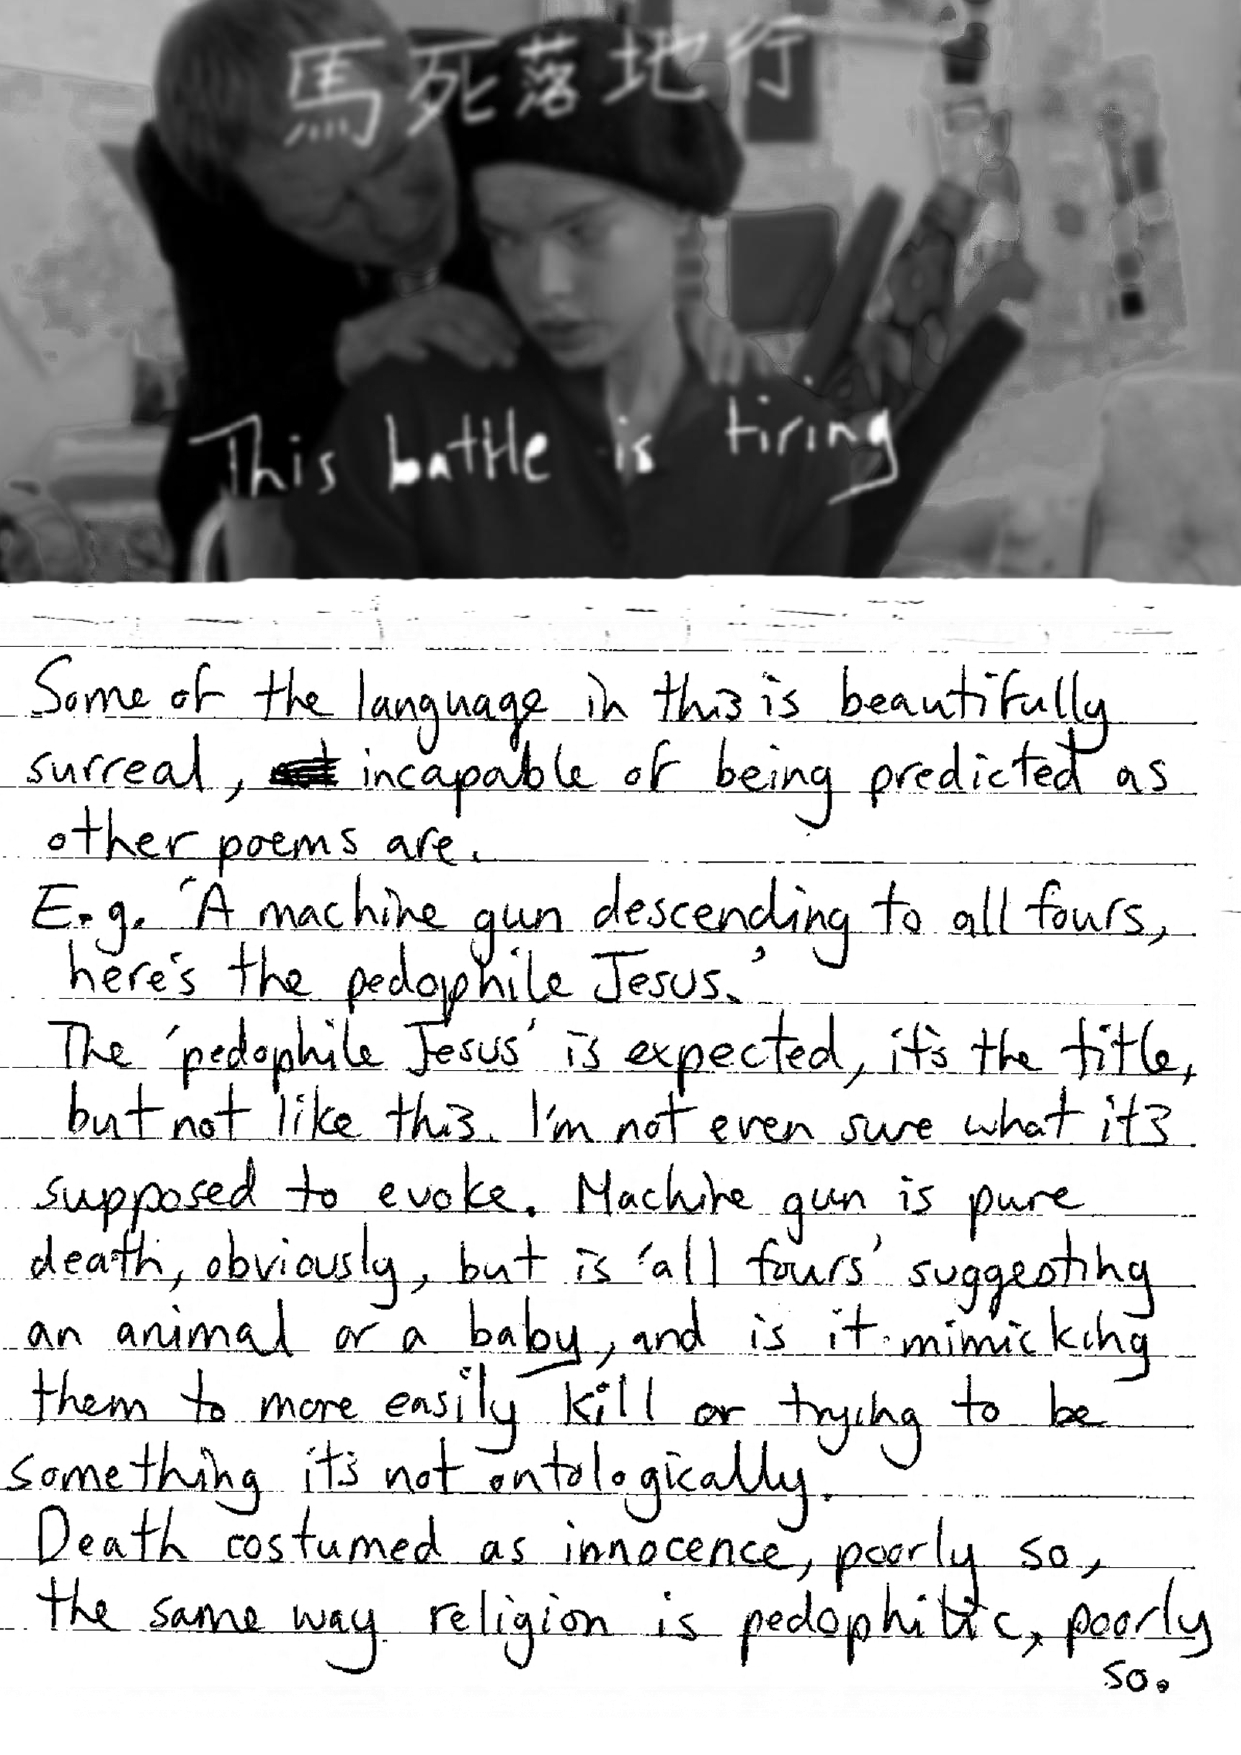 馬死落地行
This battle is tiring
Some of the language in this is beautifully
surreal, incapable of being predicted as
other poems are.
E.g. 'A machine gun descending to all fours,
here's the pedophile Jesus.'
The 'pedophile Jesus' is expected, it's the title,
but not like this. I'm not even sure what it's
supposed to evoke. Machine gun is pure
death, obviously, but is 'all fours' suggesting
an animal or a baby, and is it mimicking
them to more easily kill or trying to be
something it's not ontologically.
Death costumed as innocence, poorly so,
the same way religion is pedophilic, poorly
so.